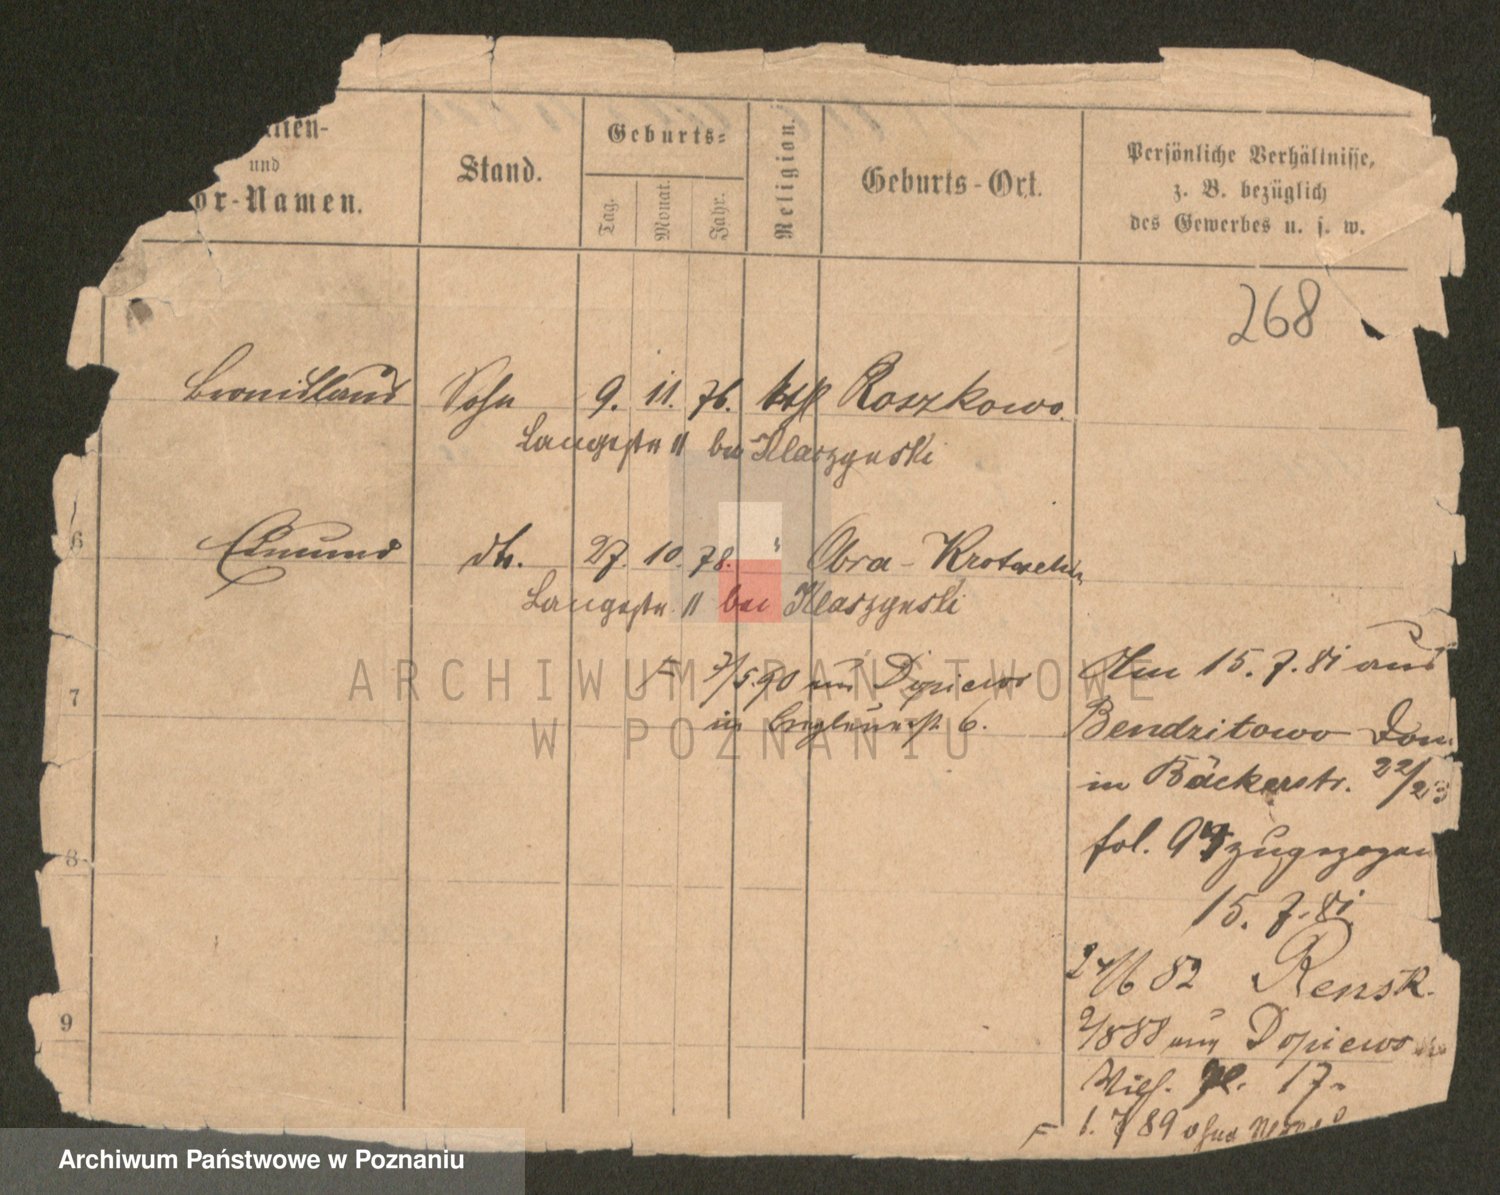 und
or-Namen.
Stand.
Geburts-
Tag.
Monat.
Jahr.
Religion.
Geburts-Ort.
Persönliche Verhältnisse,
z. B. bezüglich
des Gewerbes u. s. w.
268
Bronislaus Sohn 9. 11. 76. kth Roszkowo.
Langestr 11 bei Klaszynski
6 Edmund dto. 27. 10. 78. " Obra - Krotoschin
Langestr. 11 bei Klaszynski
7/5.90 aus Dopiewo
in 6.
7
Am 15. 7. 81 aus
Bendzitowo Dom
in Bäckerstr. 22/23
fol. 94 zugezogen
15. 7. 81.
8
24/6 82 Rensk.
9
2/8 88 aus Dopiewo
Wilh. Pl. 17.
1. 7 89 ohne
ARCHIWUM PAŃSTWOWE
W POZNANIU
Archiwum Państwowe w Poznaniu